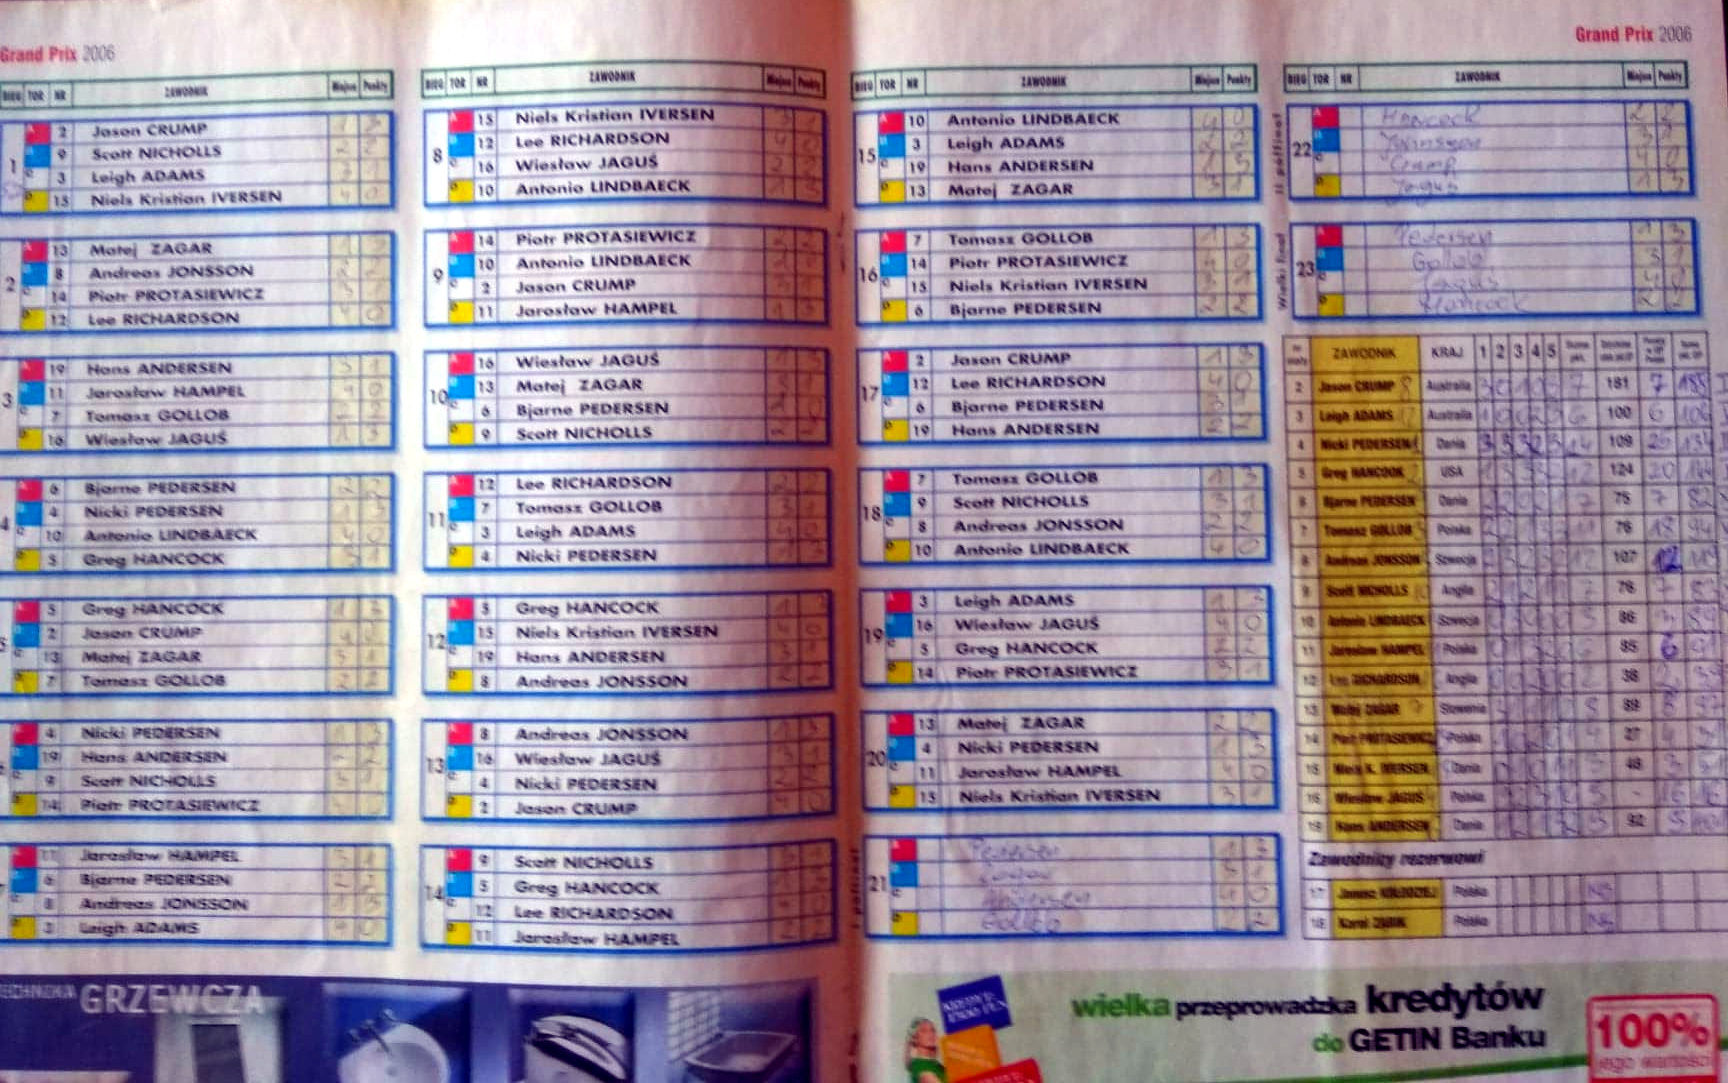 Grand Prix 2006
Grand Prix 2006
BIEG TOR NR ZAWODNIK Miejsce Punkty
1
A 2 Jason CRUMP 1 3
B 9 Scott NICHOLLS 2 2
C 3 Leigh ADAMS 3 1
D 15 Niels Kristian IVERSEN 4 0
2
A 13 Matej ZAGAR 1 3
B 8 Andreas JONSSON 2 2
C 14 Piotr PROTASIEWICZ 3 1
D 12 Lee RICHARDSON 4 0
3
A 19 Hans ANDERSEN 3 1
B 11 Jarosław HAMPEL 4 0
C 7 Tomasz GOLLOB 2 2
D 16 Wiesław JAGUŚ 1 3
4
A 6 Bjarne PEDERSEN 2 2
B 4 Nicki PEDERSEN 1 3
C 10 Antonio LINDBAECK 4 0
D 5 Greg HANCOCK 3 1
5
A 5 Greg HANCOCK 1 3
B 2 Jason CRUMP 4
C 13 Matej ZAGAR 3 1
D 7 Tomasz GOLLOB 2 2
A 4 Nicki PEDERSEN 1 3
B 19 Hans ANDERSEN 2 2
C 9 Scott NICHOLLS 3 1
D 14 Piotr PROTASIEWICZ 4 0
A 11 Jarosław HAMPEL 3 1
B 6 Bjarne PEDERSEN 2 2
C 8 Andreas JONSSON 1 3
D 3 Leigh ADAMS 4 0
BIEG TOR NR ZAWODNIK Miejsce Punkty
8
A 15 Niels Kristian IVERSEN 3 1
B 12 Lee RICHARDSON 4 0
C 16 Wiesław JAGUŚ 2 2
D 10 Antonio LINDBAECK 1 3
9
A 14 Piotr PROTASIEWICZ
B 10 Antonio LINDBAECK
C 2 Jason CRUMP
D 11 Jarosław HAMPEL 1 3
10
A 16 Wiesław JAGUŚ 1 3
B 13 Matej ZAGAR 3 1
C 6 Bjarne PEDERSEN
D 9 Scott NICHOLLS 2 2
11
A 12 Lee RICHARDSON 2 2
B 7 Tomasz GOLLOB 3 1
C 3 Leigh ADAMS 4 0
D 4 Nicki PEDERSEN 1 3
12
A 5 Greg HANCOCK 1
B 15 Niels Kristian IVERSEN 4 0
C 19 Hans ANDERSEN 3 1
D 8 Andreas JONSSON 2 2
13
A 8 Andreas JONSSON 1 3
B 16 Wiesław JAGUŚ 3 1
C 4 Nicki PEDERSEN 2 2
D 2 Jason CRUMP 4 0
14
A 9 Scott NICHOLLS 3 1
B 5 Greg HANCOCK 1 3
C 12 Lee RICHARDSON 4 0
D 11 Jarosław HAMPEL 2 2
BIEG TOR NR ZAWODNIK Miejsce Punkty
15
A 10 Antonio LINDBAECK 4 0
B 3 Leigh ADAMS 2 2
C 19 Hans ANDERSEN 1 3
D 13 Matej ZAGAR 3 1
16
A 7 Tomasz GOLLOB 1 3
B 14 Piotr PROTASIEWICZ 4 0
C 15 Niels Kristian IVERSEN 3 1
D 6 Bjarne PEDERSEN 2 2
17
A 2 Jason CRUMP 1 3
B 12 Lee RICHARDSON 4 0
C 6 Bjarne PEDERSEN 3 1
D 19 Hans ANDERSEN 2 2
18
A 7 Tomasz GOLLOB 1 3
B 9 Scott NICHOLLS 3 1
C 8 Andreas JONSSON 2 2
D 10 Antonio LINDBAECK 4 0
19
A 3 Leigh ADAMS 1 3
B 16 Wiesław JAGUŚ 4 0
C 5 Greg HANCOCK 2 2
D 14 Piotr PROTASIEWICZ 3 1
20
A 13 Matej ZAGAR 2 2
B 4 Nicki PEDERSEN 1 3
C 11 Jarosław HAMPEL 4 0
D 15 Niels Kristian IVERSEN 3 1
I półfinał
21
A Pedersen 1 3
B 3 1
C 4 0
D Gollob 2 2
BIEG TOR NR ZAWODNIK Miejsce Punkty
II półfinał
22
A Hancock 2 2
B Jonsson 3 1
C Crump 4 0
D Jaguś 1 3
Wielki finał
23
A Pedersen 1 3
B Gollob 3 1
C Jaguś 4 0
D Hancock 2 2
ZAWODNIK KRAJ 1 2 3 4 5
2 Jason CRUMP Australia 181 7 188
3 Leigh ADAMS Australia 6 100 6 106
4 Nicki PEDERSEN Dania 3 3 3 2 3 14 109 25 134
5 Greg HANCOCK USA 1 3 3 3 2 12 124 20 144
6 Bjarne PEDERSEN Dania 7 75 7 82
7 Tomasz GOLLOB Polska 2 2 1 3 3 11 76 18 94
8 Andreas JONSSON Szwecja 2 3 2 3 2 12 107 12 119
9 Scott NICHOLLS Anglia 2 1 2 1 1 7 76 7 83
10 Antonio LINDBAECK Szwecja 86
11 Jarosław HAMPEL Polska 85 6 91
12 Lee RICHARDSON Anglia 2 2
13 Matej ZAGAR Słowenia 89 8 97
14 Piotr PROTASIEWICZ Polska 27 4 31
15 Niels K. IVERSEN Dania 48 3 51
16 Wiesław JAGUŚ Polska - 16 16
19 Hans ANDERSEN Dania 92
Zawodnicy rezerwowi
17 Janusz KOŁODZIEJ Polska NS
18 Karol ZĄBIK Polska NS
TECHNIKA GRZEWCZA
wielka przeprowadzka kredytów
do GETIN Banku
100%
jego wartości